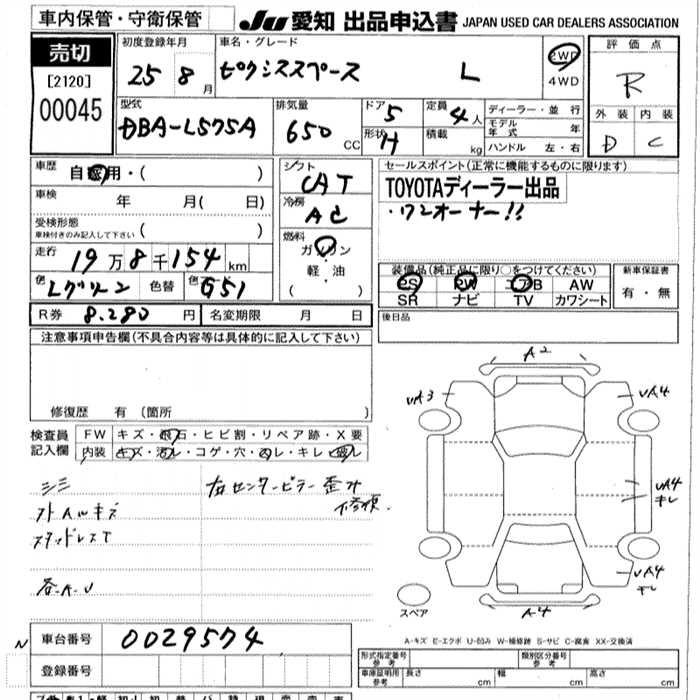 車内保管・守衛保管
JU 愛知 出品申込書 JAPAN USED CAR DEALERS ASSOCIATION
売切
[2120]
00045
初度登録年月
25 8 月
車名・グレード
ピクシススペース L
2WD
4WD
評価点
R
外装 内装
D C
型式
DBA-L575A
排気量
650 CC
ドア 5
形状 H
定員 4人
積載 kg
ディーラー・並行
モデル年式 年
ハンドル 左・右
車歴 自家用・( )
車検 年 月( 日)
受検形態
車検付きのみ記入して下さい ( )
走行 19万8千154km
色 Lグリーン 色替 色 G51
シフト
CAT
冷房
AC
燃料
ガソリン
軽・油
( )
セールスポイント(正常に機能するものに限ります)
TOYOTAディーラー出品
・ワンオーナー!!
装備品(純正品に限り○をつけてください)
PS PW エアB AW
SR ナビ TV カワシート
新車保証書
有・無
R券 8.280 円 名変期限 月 日
後日品
注意事項申告欄(不具合内容等は具体的に記入して下さい)
修復歴 有 (箇所 )
検査員記入欄
FW キズ・飛石・ヒビ割・リペア跡・X要
内装 キズ・汚レ・コゲ・穴・凹レ・キレ・破レ
シミ
右センターピラー歪み
修復
各A.U
A2
UA3
UA4
UA4
キレ
UA4
キレ
A4
スペア
A-キズ E-エクボ U-凹み W-補修跡 S-サビ C-腐食 XX-交換済
N
車台番号 0029574
登録番号
形式指定番号 参考
類別区分番号 参考
車庫証明用 参考 長さ cm 幅 cm 高さ cm